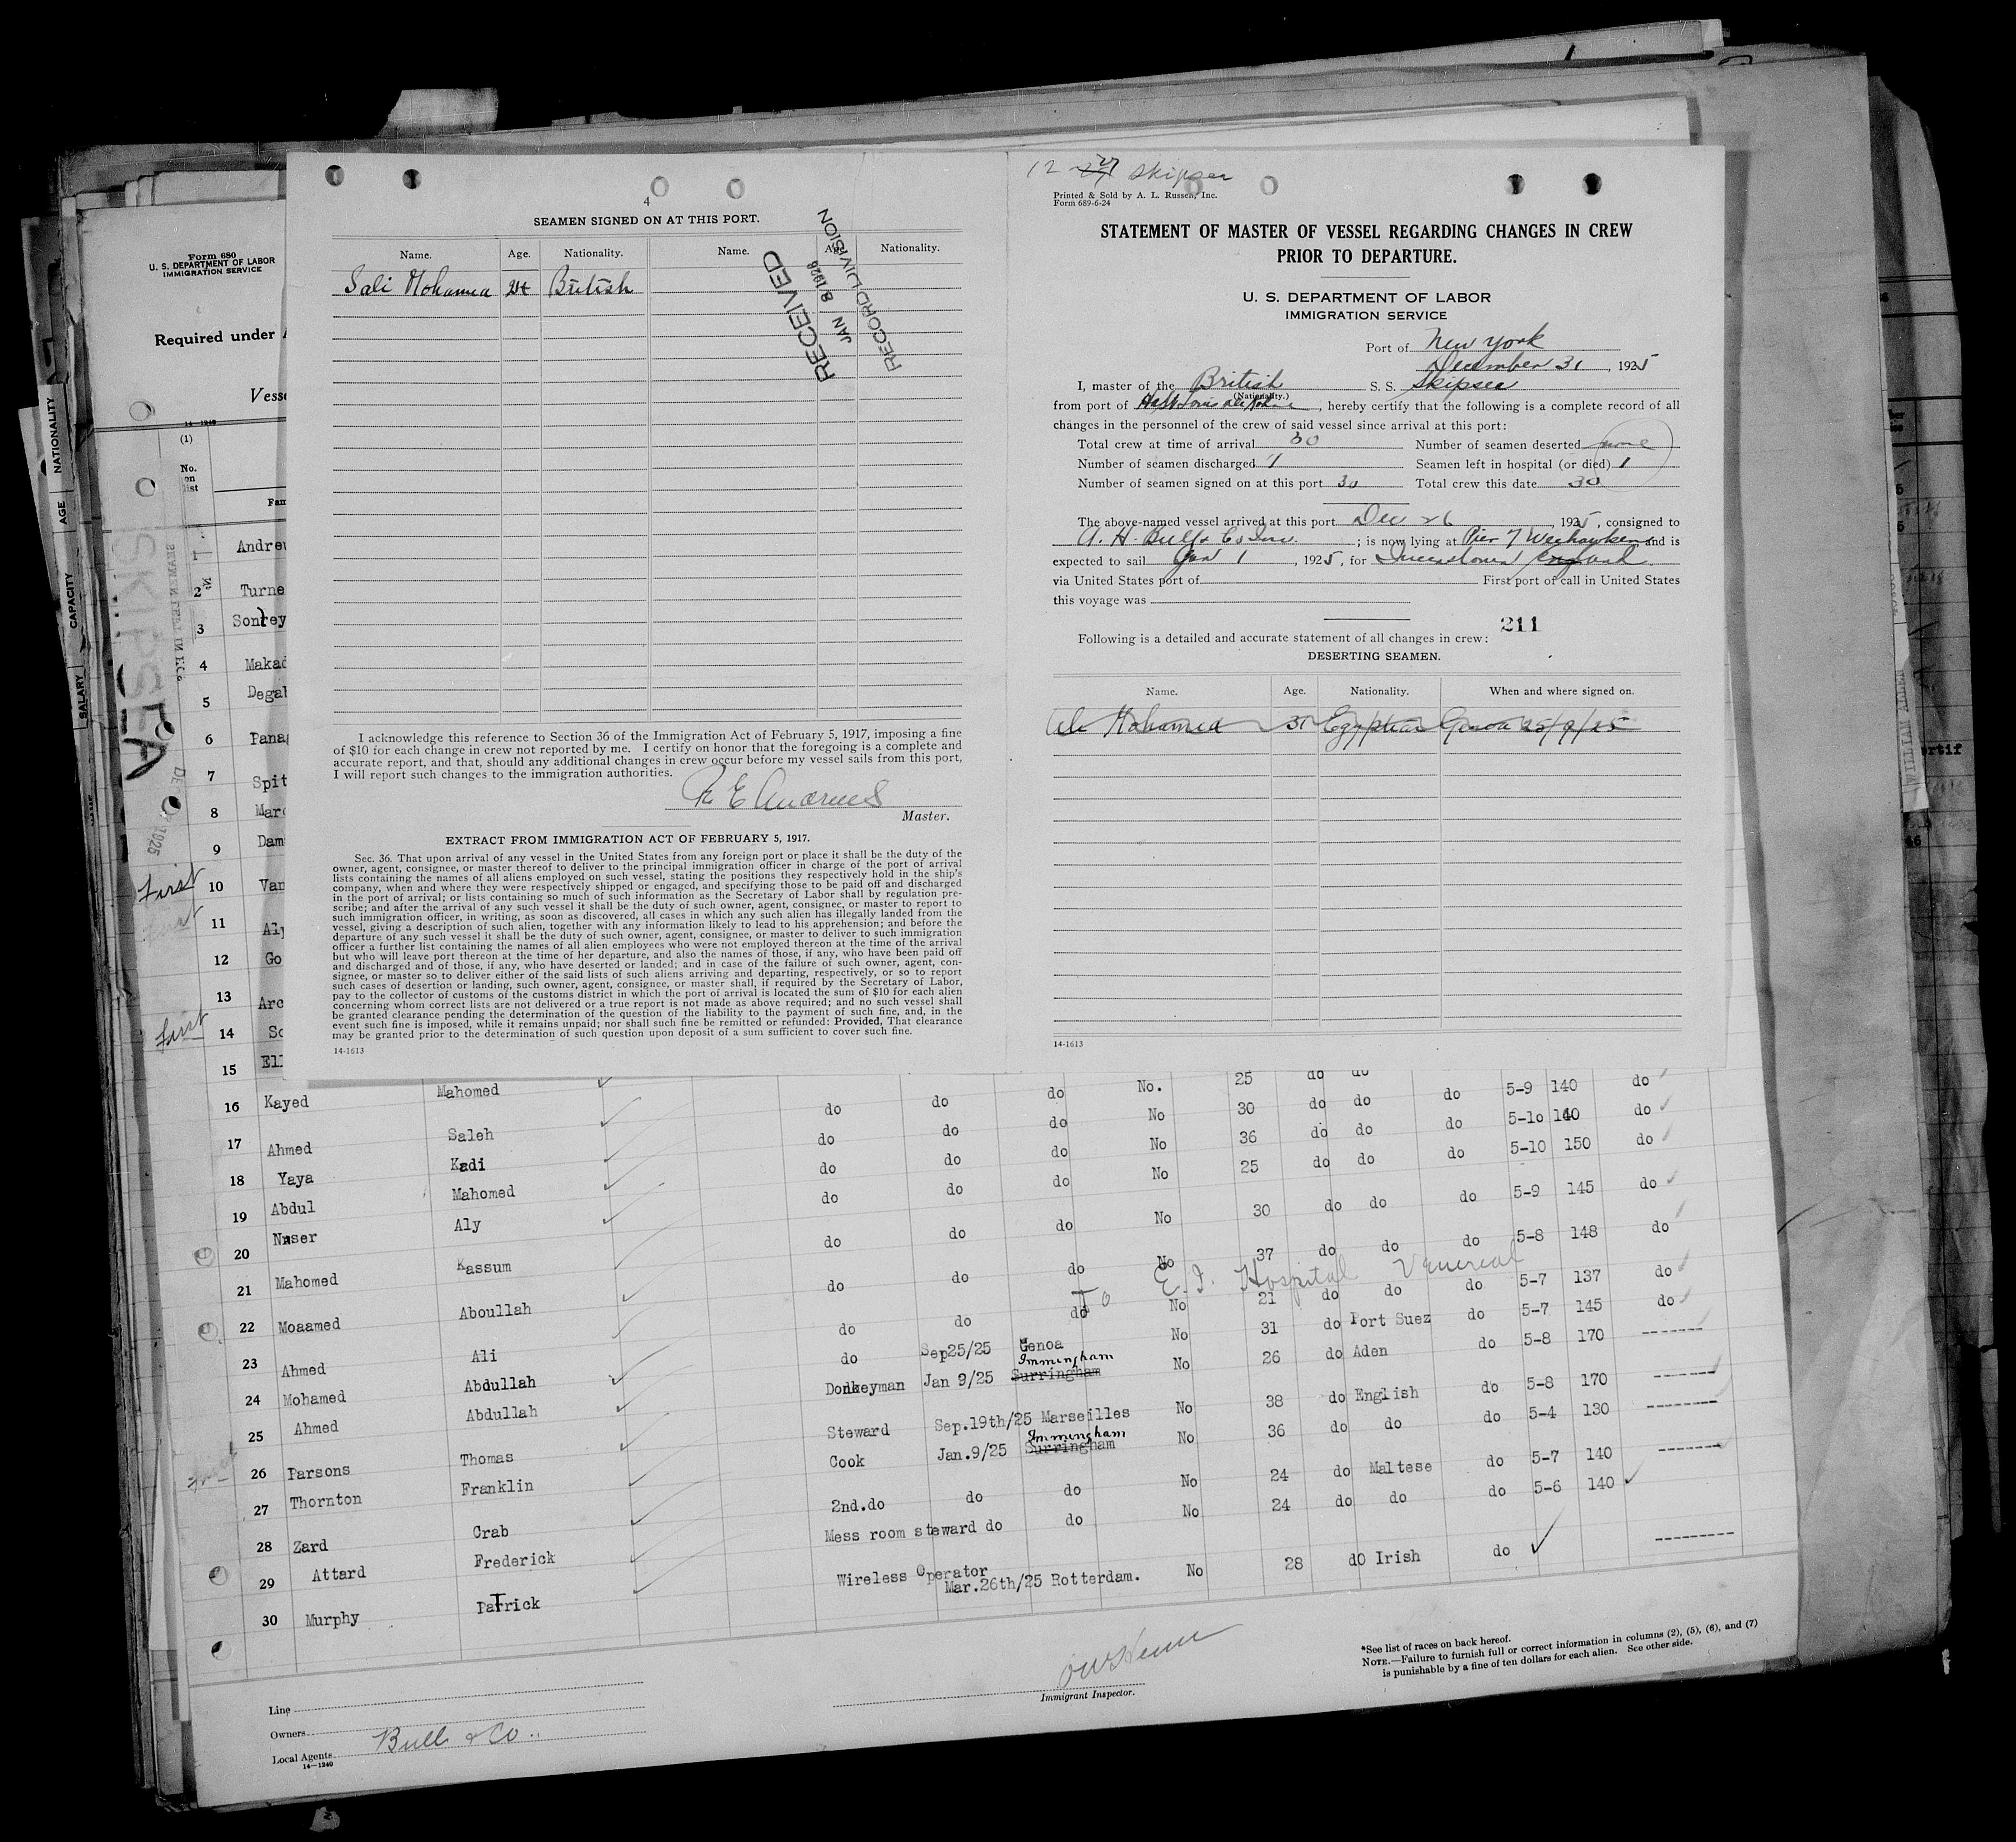 Form 680
U. S. DEPARTMENT OF LABOR
IMMIGRATION SERVICE
Required under
Vesse
14—1240
(1)
No.
on
list
Fam
NATIONALITY
AGE
CAPACITY
SALARY
SKIPSEA
1 Andrew
2 Turne
3 Sonrey
4 Makad
5 Degab
6 Panag
7 Spit
8 Marc
9 Dam
First 10 Van
11 Aly
12 Go
13 Arc
First 14 So
15 Ell
4
SEAMEN SIGNED ON AT THIS PORT.
Name. Age. Nationality. Name. Age. Nationality.
Sali Mohamed 24 British
RECEIVED
JAN 8 1926
RECORD DIVISION
I acknowledge this reference to Section 36 of the Immigration Act of February 5, 1917, imposing a fine
of $10 for each change in crew not reported by me. I certify on honor that the foregoing is a complete and
accurate report, and that, should any additional changes in crew occur before my vessel sails from this port,
I will report such changes to the immigration authorities.
R E Andrews
Master.
EXTRACT FROM IMMIGRATION ACT OF FEBRUARY 5, 1917.
Sec. 36. That upon arrival of any vessel in the United States from any foreign port or place it shall be the duty of the
owner, agent, consignee, or master thereof to deliver to the principal immigration officer in charge of the port of arrival
lists containing the names of all aliens employed on such vessel, stating the positions they respectively hold in the ship's
company, when and where they were respectively shipped or engaged, and specifying those to be paid off and discharged
in the port of arrival; or lists containing so much of such information as the Secretary of Labor shall by regulation pre-
scribe; and after the arrival of any such vessel it shall be the duty of such owner, agent, consignee, or master to report to
such immigration officer, in writing, as soon as discovered, all cases in which any such alien has illegally landed from the
vessel, giving a description of such alien, together with any information likely to lead to his apprehension; and before the
departure of any such vessel it shall be the duty of such owner, agent, consignee, or master to deliver to such immigration
officer a further list containing the names of all alien employees who were not employed thereon at the time of the arrival
but who will leave port thereon at the time of her departure, and also the names of those, if any, who have been paid off
and discharged and of those, if any, who have deserted or landed; and in case of the failure of such owner, agent, con-
signee, or master so to deliver either of the said lists of such aliens arriving and departing, respectively, or so to report
such cases of desertion or landing, such owner, agent, consignee, or master shall, if required by the Secretary of Labor,
pay to the collector of customs of the customs district in which the port of arrival is located the sum of $10 for each alien
concerning whom correct lists are not delivered or a true report is not made as above required; and no such vessel shall
be granted clearance pending the determination of the question of the liability to the payment of such fine, and, in the
event such fine is imposed, while it remains unpaid; nor shall such fine be remitted or refunded: Provided, That clearance
may be granted prior to the determination of such question upon deposit of a sum sufficient to cover such fine.
14-1613
12 27 Skipsea
Printed & Sold by A. L. Russen, Inc.
Form 689-6-24
STATEMENT OF MASTER OF VESSEL REGARDING CHANGES IN CREW
PRIOR TO DEPARTURE.
U. S. DEPARTMENT OF LABOR
IMMIGRATION SERVICE
Port of New York
December 31, 1925
I, master of the British S. S. Skipsea
(Nationality.)
from port of , hereby certify that the following is a complete record of all
changes in the personnel of the crew of said vessel since arrival at this port:
Total crew at time of arrival 30 Number of seamen deserted none
Number of seamen discharged 1 Seamen left in hospital (or died) 1
Number of seamen signed on at this port 30 Total crew this date 30
The above-named vessel arrived at this port Dec 26, 1925, consigned to
A. H. Bull & Co Inc. ; is now lying at Pier 7 Weehawken and is
expected to sail Jan 1, 1925, for Queenstown England
via United States port of First port of call in United States
this voyage was
211
Following is a detailed and accurate statement of all changes in crew:
DESERTING SEAMEN.
Name. Age. Nationality. When and where signed on.
Ali Mohamed 31 Egyptian Genoa 25/9/25
14-1613
16 Kayed Mahomed do do do No. 25 do do do 5-9 140 do
17 Ahmed Saleh do do do No 30 do do do 5-10 140 do
18 Yaya Kadi do do do No 36 do do do 5-10 150 do
19 Abdul Mahomed do do do No 25 do do do 5-9 145 do
20 Naser Aly do do do No 30 do do do 5-8 148 do
21 Mahomed Kassum do do do No 37 do do do 5-7 137 do
To E. I. Hospital Venereal
22 Moaamed Aboullah do do do No 21 do do do 5-7 145 do
23 Ahmed Ali do Sep25/25 Genoa No 31 do Port Suez do 5-8 170 -------
24 Mohamed Abdullah Donkeyman Jan 9/25 Surringham Immingham No 26 do Aden do
25 Ahmed Abdullah Steward Sep.19th/25 Marseilles No 38 do English do 5-8 170 --------
26 Parsons Thomas Cook Jan.9/25 Surringham Immingham No 36 do do do 5-4 130 --------
27 Thornton Franklin 2nd.do do do No 24 do Maltese do 5-7 140 --------
28 Zard Crab Mess room steward do do No 24 do do do 5-6 140
29 Attard Frederick Wireless Operator
30 Murphy PaTrick Mar.26th/25 Rotterdam. No 28 do Irish do ---------
Line
Owners
Local Agents Bull & Co.
14—1240
Immigrant Inspector.
*See list of races on back hereof.
NOTE.—Failure to furnish full or correct information in columns (2), (5), (6), and (7)
is punishable by a fine of ten dollars for each alien. See other side.